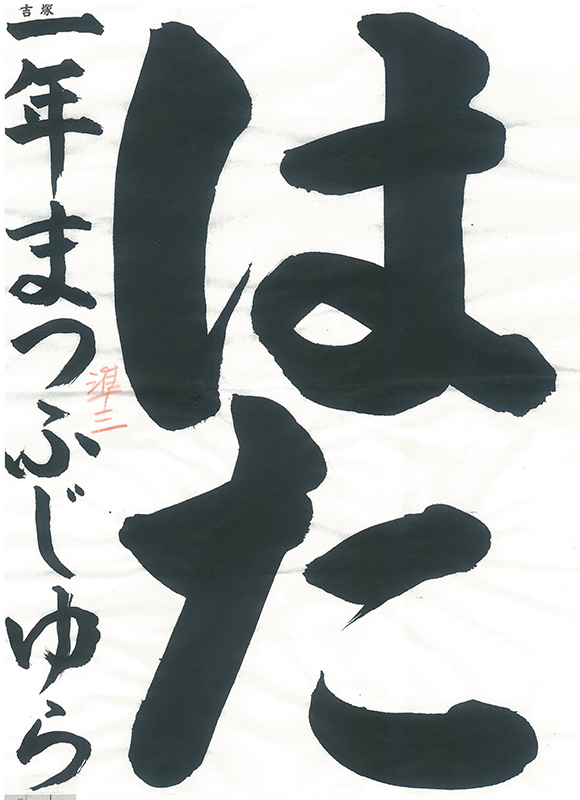 はた
吉塚
一年まつふじゆら
準三